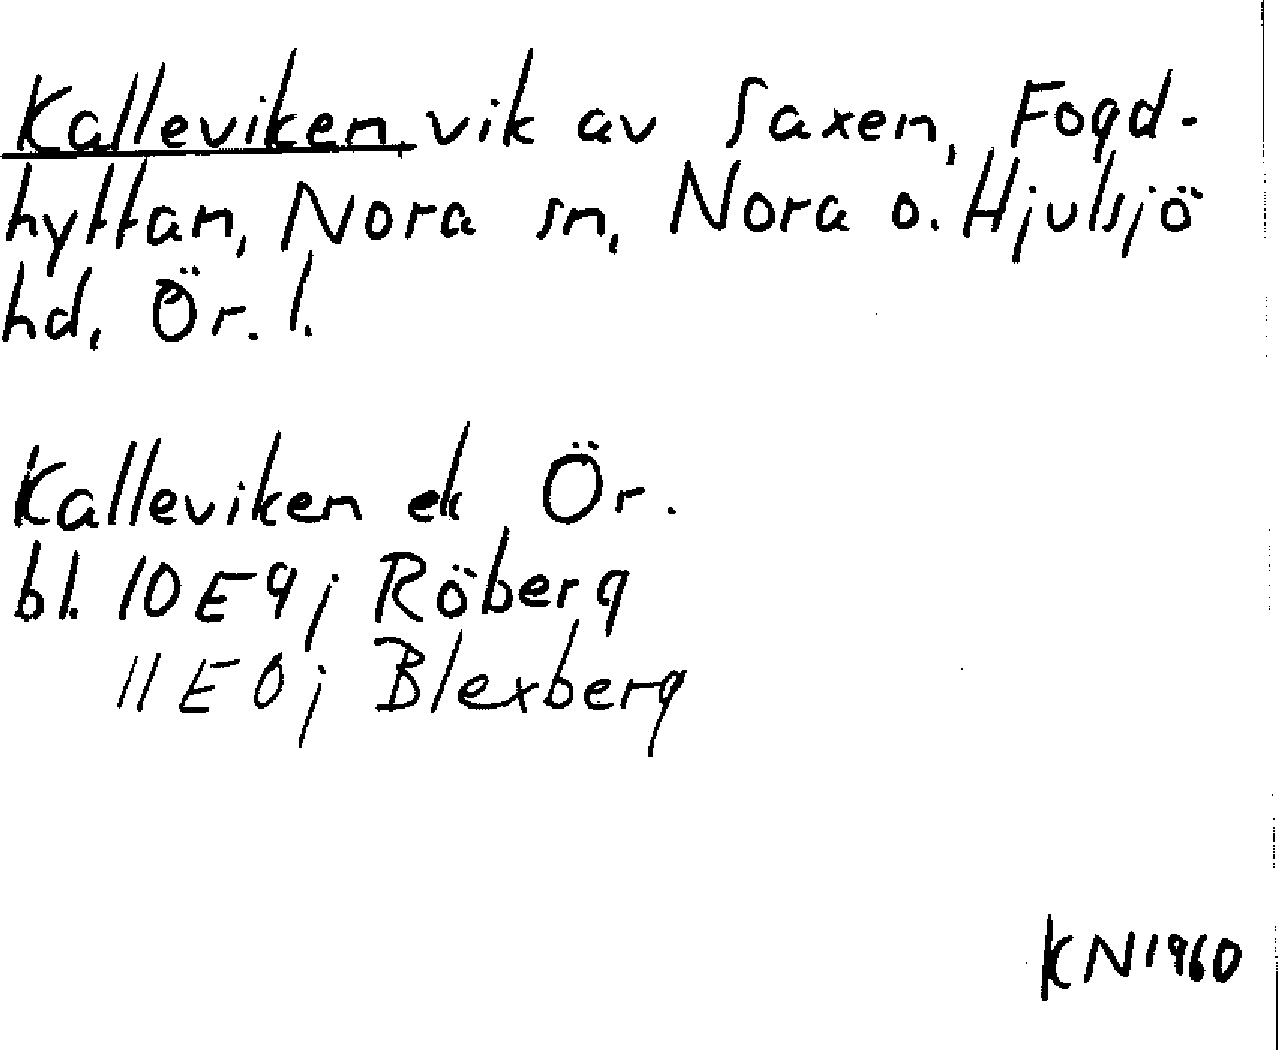 Kalleviken, vik av Saxen, Fogd-
hyttan, Nora sn, Nora o. Hjulsjö
hd, Ör. l.
Kalleviken ek Ör.
bl. 10E9j Röberg
11E0j Blexberg
KN1960